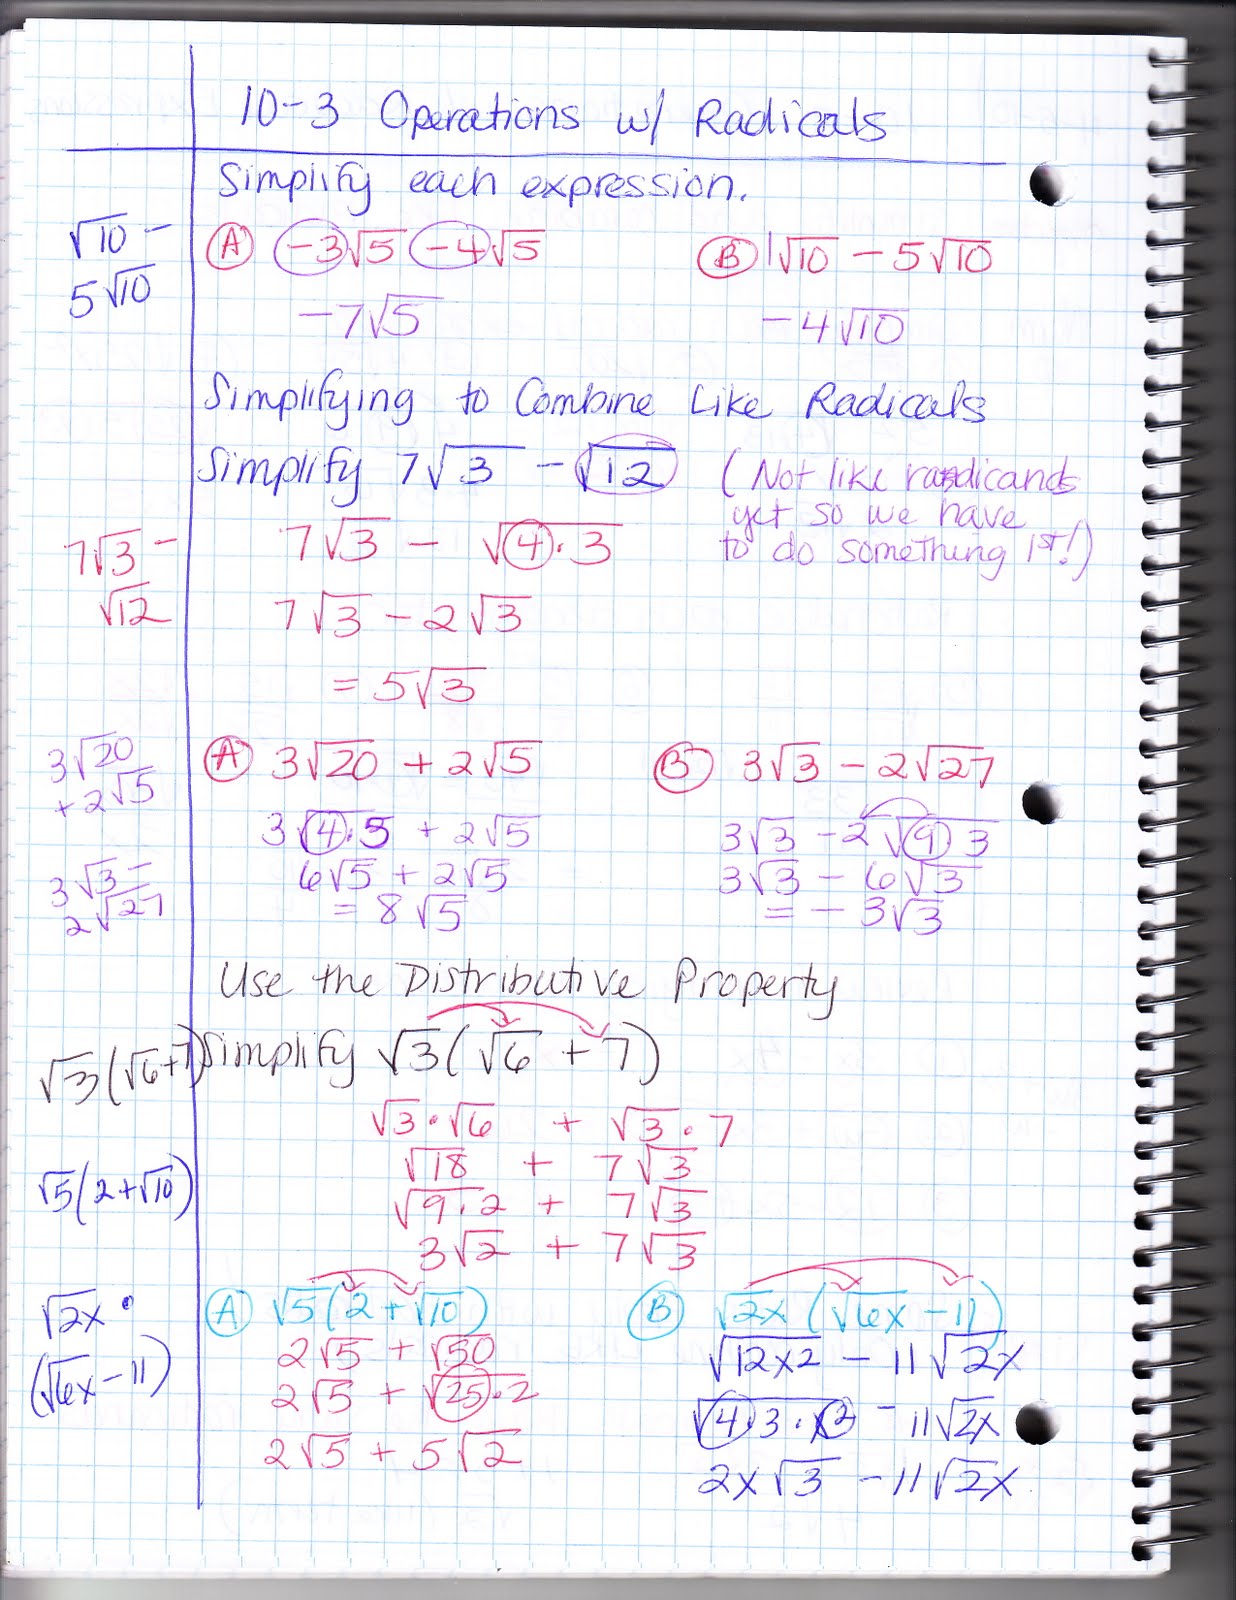 10-3 Operations w/ Radicals
Simplify each expression.
√10 −
5√10
Ⓐ −3√5 −4√5
Ⓑ 1√10 − 5√10
−7√5
−4√10
Simplifying to Combine Like Radicals
Simplify 7√3 − √12
(Not like radicands
yet so we have
to do something 1st!)
7√3 −
√12
7√3 − √4·3
7√3 − 2√3
= 5√3
3√20
+ 2√5
Ⓐ 3√20 + 2√5
Ⓑ 3√3 − 2√27
3√4·5 + 2√5
3√3 − 2√9·3
3√3 −
2√27
6√5 + 2√5
3√3 − 6√3
= 8√5
= − 3√3
Use the Distributive Property
√3(√6+7)
Simplify √3(√6 + 7)
√3·√6 + √3·7
√18 + 7√3
√5(2+√10)
√9·2 + 7√3
3√2 + 7√3
√2x ·
(√6x − 11)
Ⓐ √5(2+√10)
Ⓑ √2x(√6x − 11)
2√5 + √50
√12x2 − 11√2x
2√5 + √25·2
√4·3·x2 − 11√2x
2√5 + 5√2
2x√3 − 11√2x